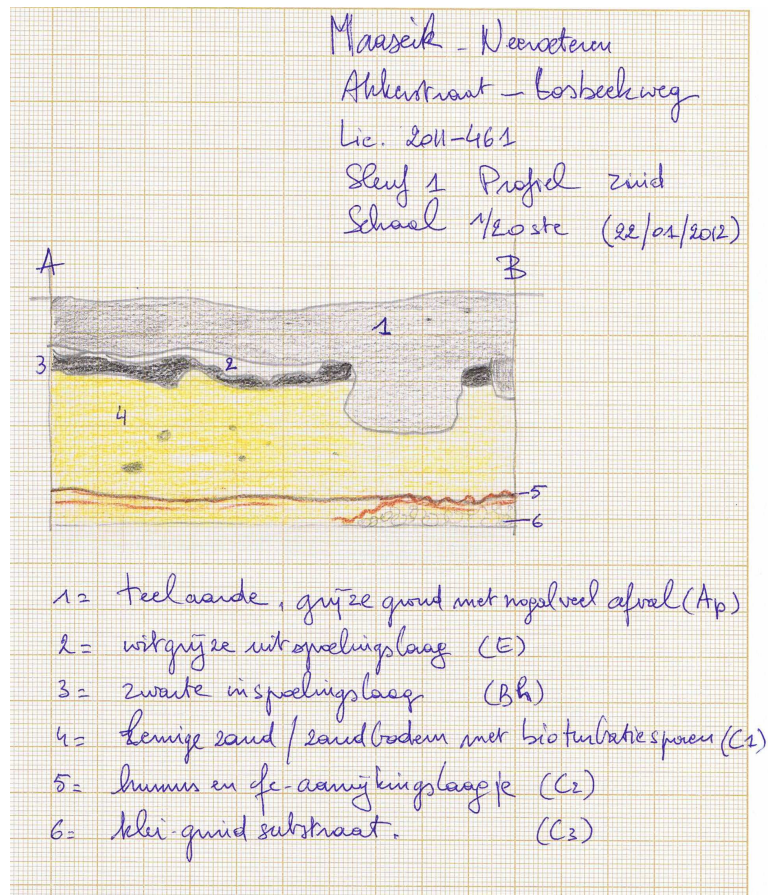 Maaseik - Neeroeteren
Akkerstraat - Losbeekweg
Lic. 2011-461
Sleuf 1 Profiel zuid
Schaal 1/20ste (22/01/2012)
A B
1
3 2
4
5
6
1= teelaarde, grijze grond met nogal veel afval (Ap)
2= witgrijze uitspoelingslaag (E)
3= zwarte inspoelingslaag (Bh)
4= Lemige zand / zandbodem met bioturbatiesporen (C1)
5= humus en fe-aanrijkingslaagje (C2)
6= klei-grind substraat. (C3)